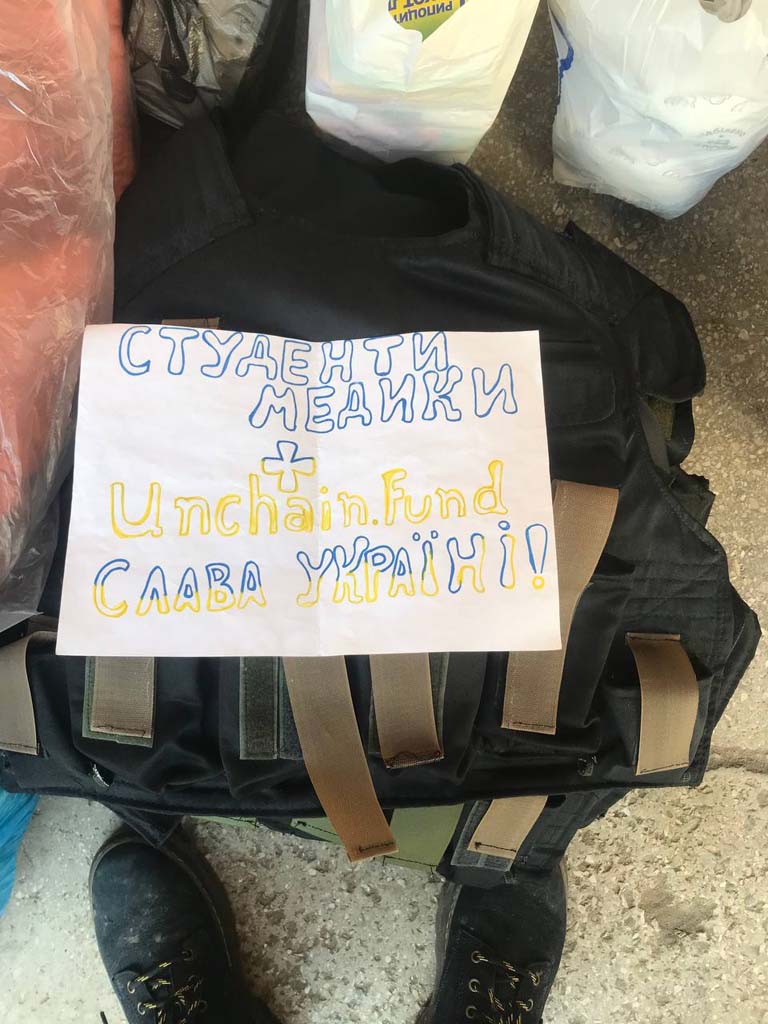 СТУДЕНТИ
МЕДИКИ
+
Unchain.Fund
СЛАВА УКРАЇНІ!